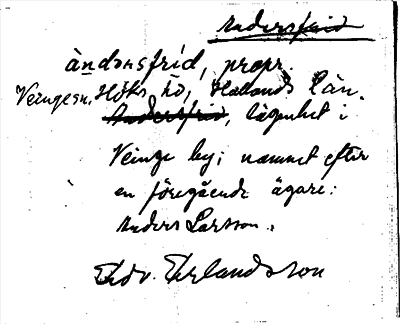 Andersfrid
àndənsfríd, propr.
Veinge sn, Höks hd, Hallands län.
Andersfrid, lägenhet i
Veinge by; namnet efter
en föregående ägare:
Anders Larsson.
Edv. Erlandsson